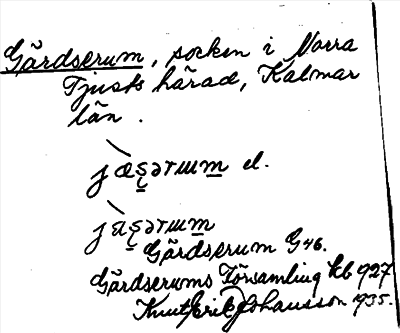 Gärdserum, socken i Norra
Tjusts härad, Kalmar
län.
jæ̀ʂərɯm el.
jàʂərɯm
Gärdserum G46.
Gärdserums Församling Kb 1927
Knut Erik Johansson 1935.